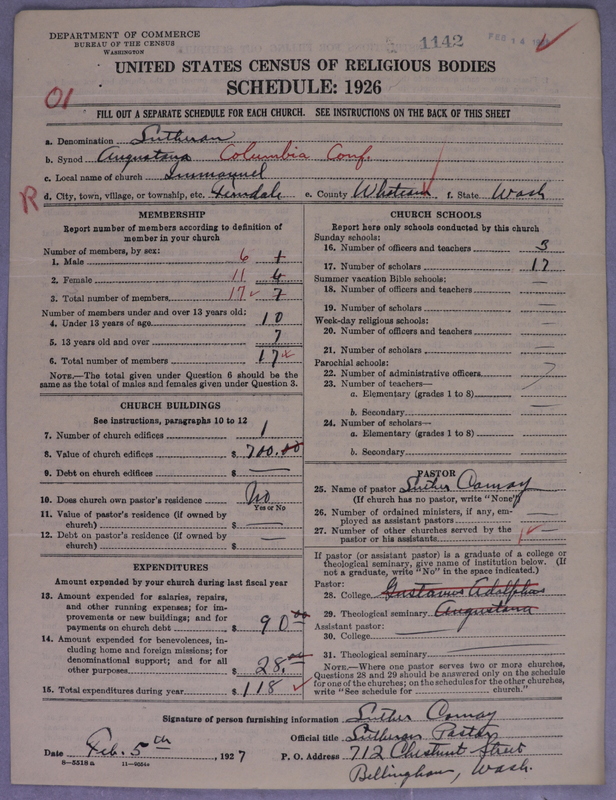 DEPARTMENT OF COMMERCE
BUREAU OF THE CENSUS
WASHINGTON
1142
FEB 14
UNITED STATES CENSUS OF RELIGIOUS BODIES
SCHEDULE: 1926
01
FILL OUT A SEPARATE SCHEDULE FOR EACH CHURCH. SEE INSTRUCTIONS ON THE BACK OF THIS SHEET
a. Denomination Lutheran
b. Synod Augustana Columbia Conf.
c. Local name of church Immanuel
R
d. City, town, village, or township, etc. Ferndale e. County Whatcom f. State Wash
MEMBERSHIP
Report number of members according to definition of
member in your church
Number of members, by sex:
1. Male 6
2. Female 11 4
3. Total number of members 17 7
Number of members under and over 13 years old:
4. Under 13 years of age 10
5. 13 years old and over 7
6. Total number of members 17
NOTE.—The total given under Question 6 should be the
same as the total of males and females given under Question 3.
CHURCH BUILDINGS
See instructions, paragraphs 10 to 12
7. Number of church edifices 1
8. Value of church edifices $ 700.00
9. Debt on church edifices $ —
10. Does church own pastor's residence No
Yes or No
11. Value of pastor's residence (if owned by
church) $ —
12. Debt on pastor's residence (if owned by
church) $ —
EXPENDITURES
Amount expended by your church during last fiscal year
13. Amount expended for salaries, repairs,
and other running expenses; for im-
provements or new buildings; and for
payments on church debt $ 90.00
14. Amount expended for benevolences, in-
cluding home and foreign missions; for
denominational support; and for all
other purposes $ 28.00
15. Total expenditures during year $ 118
CHURCH SCHOOLS
Report here only schools conducted by this church
Sunday schools:
16. Number of officers and teachers 3
17. Number of scholars 17
Summer vacation Bible schools:
18. Number of officers and teachers —
19. Number of scholars —
Week-day religious schools:
20. Number of officers and teachers —
21. Number of scholars —
Parochial schools:
22. Number of administrative officers
23. Number of teachers—
a. Elementary (grades 1 to 8) —
b. Secondary —
24. Number of scholars—
a. Elementary (grades 1 to 8) —
b. Secondary —
PASTOR
25. Name of pastor Luther
(If church has no pastor, write "None")
26. Number of ordained ministers, if any, em-
ployed as assistant pastors —
27. Number of other churches served by the
pastor or his assistants 1
If pastor (or assistant pastor) is a graduate of a college or
theological seminary, give name of institution below. (If
not a graduate, write "No" in the space indicated.)
Pastor:
28. College Gustavus Adolphus
29. Theological seminary Augustana
Assistant pastor:
30. College —
31. Theological seminary —
NOTE.—Where one pastor serves two or more churches,
Questions 28 and 29 should be answered only on the schedule
for one of the churches; on the schedules for the other churches,
write "See schedule for church."
Signature of person furnishing information Luther
Official title Lutheran Pastor
Date Feb. 5th 1927 P. O. Address 712 Chestnut Street
8—5518 a
Bellingham, Wash.